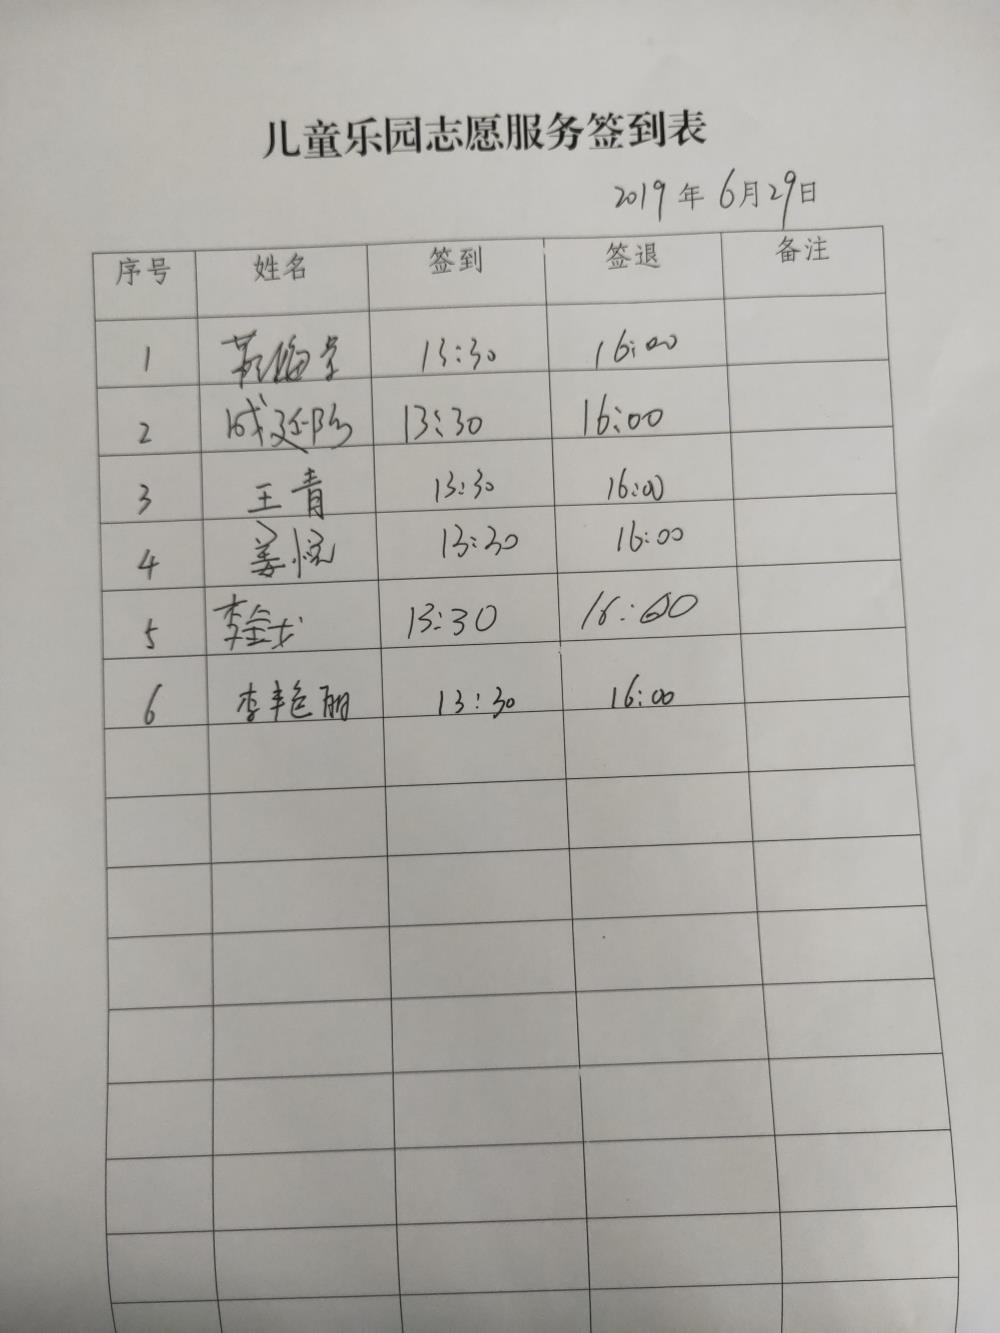 儿童乐园志愿服务签到表
2019年6月29日
序号 姓名 签到 签退 备注
1 13:30 16:00
2 成廷阳 13:30 16:00
3 王青 13:30 16:00
4 姜悦 13:30 16:00
5 李金龙 13:30 16:00
6 李艳丽 13:30 16:00